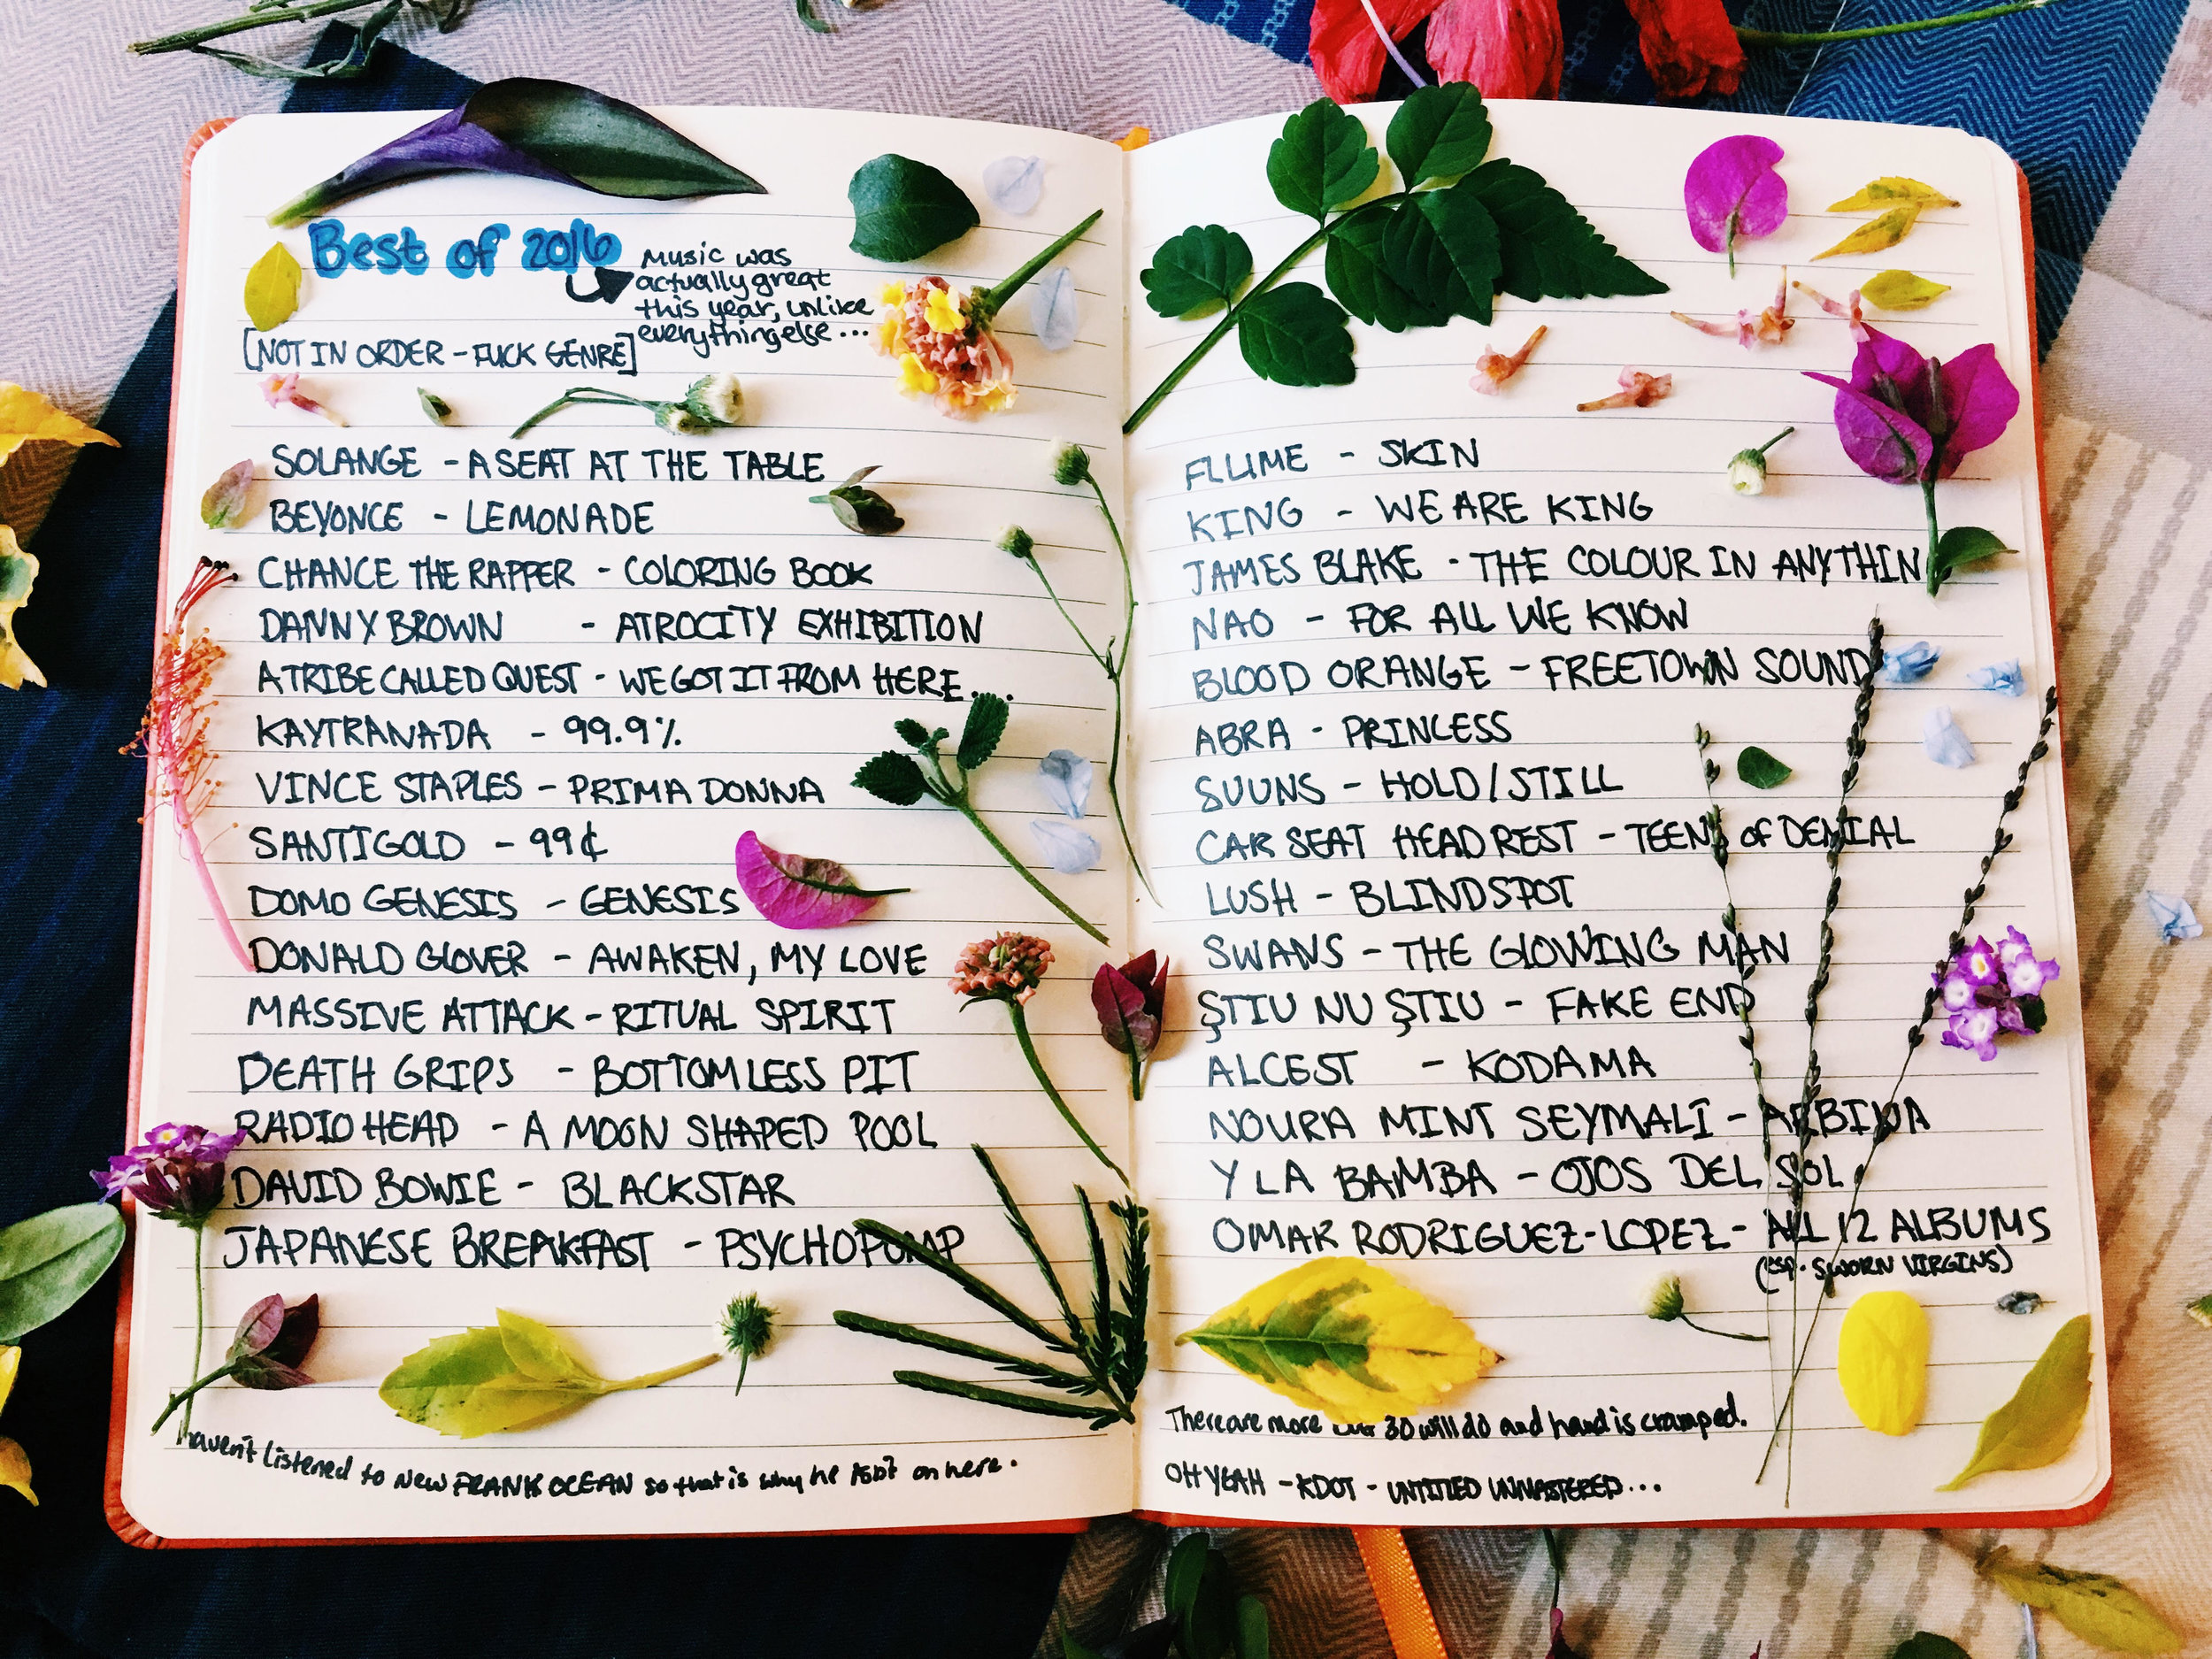 Best of 2016
Music was
actually great
this year, unlike
everything else...
[NOT IN ORDER - FUCK GENRE]
SOLANGE - A SEAT AT THE TABLE
BEYONCE - LEMONADE
CHANCE THE RAPPER - COLORING BOOK
DANNY BROWN - ATROCITY EXHIBITION
A TRIBE CALLED QUEST - WE GOT IT FROM HERE...
KAYTRANADA - 99.9%
VINCE STAPLES - PRIMA DONNA
SANTIGOLD - 99¢
DOMO GENESIS - GENESIS
DONALD GLOVER - AWAKEN, MY LOVE
MASSIVE ATTACK - RITUAL SPIRIT
DEATH GRIPS - BOTTOMLESS PIT
RADIOHEAD - A MOON SHAPED POOL
DAVID BOWIE - BLACKSTAR
JAPANESE BREAKFAST - PSYCHOPOMP
haven't listened to NEW FRANK OCEAN so that is why he isn't on here.
FLUME - SKIN
KING - WE ARE KING
JAMES BLAKE - THE COLOUR IN ANYTHIN
NAO - FOR ALL WE KNOW
BLOOD ORANGE - FREETOWN SOUND
ABRA - PRINCESS
SUUNS - HOLD/STILL
CAR SEAT HEADREST - TEENS of DENIAL
LUSH - BLINDSPOT
SWANS - THE GLOWING MAN
ȘTIU NU ȘTIU - FAKE END
ALCEST - KODAMA
NOURA MINT SEYMALI - ARBINA
Y LA BAMBA - OJOS DEL SOL
OMAR RODRIGUEZ-LOPEZ - ALL 12 ALBUMS
(esp. SWORN VIRGINS)
There are more but 30 will do and hand is cramped.
OH YEAH - KDOT - UNTITLED UNMASTERED...